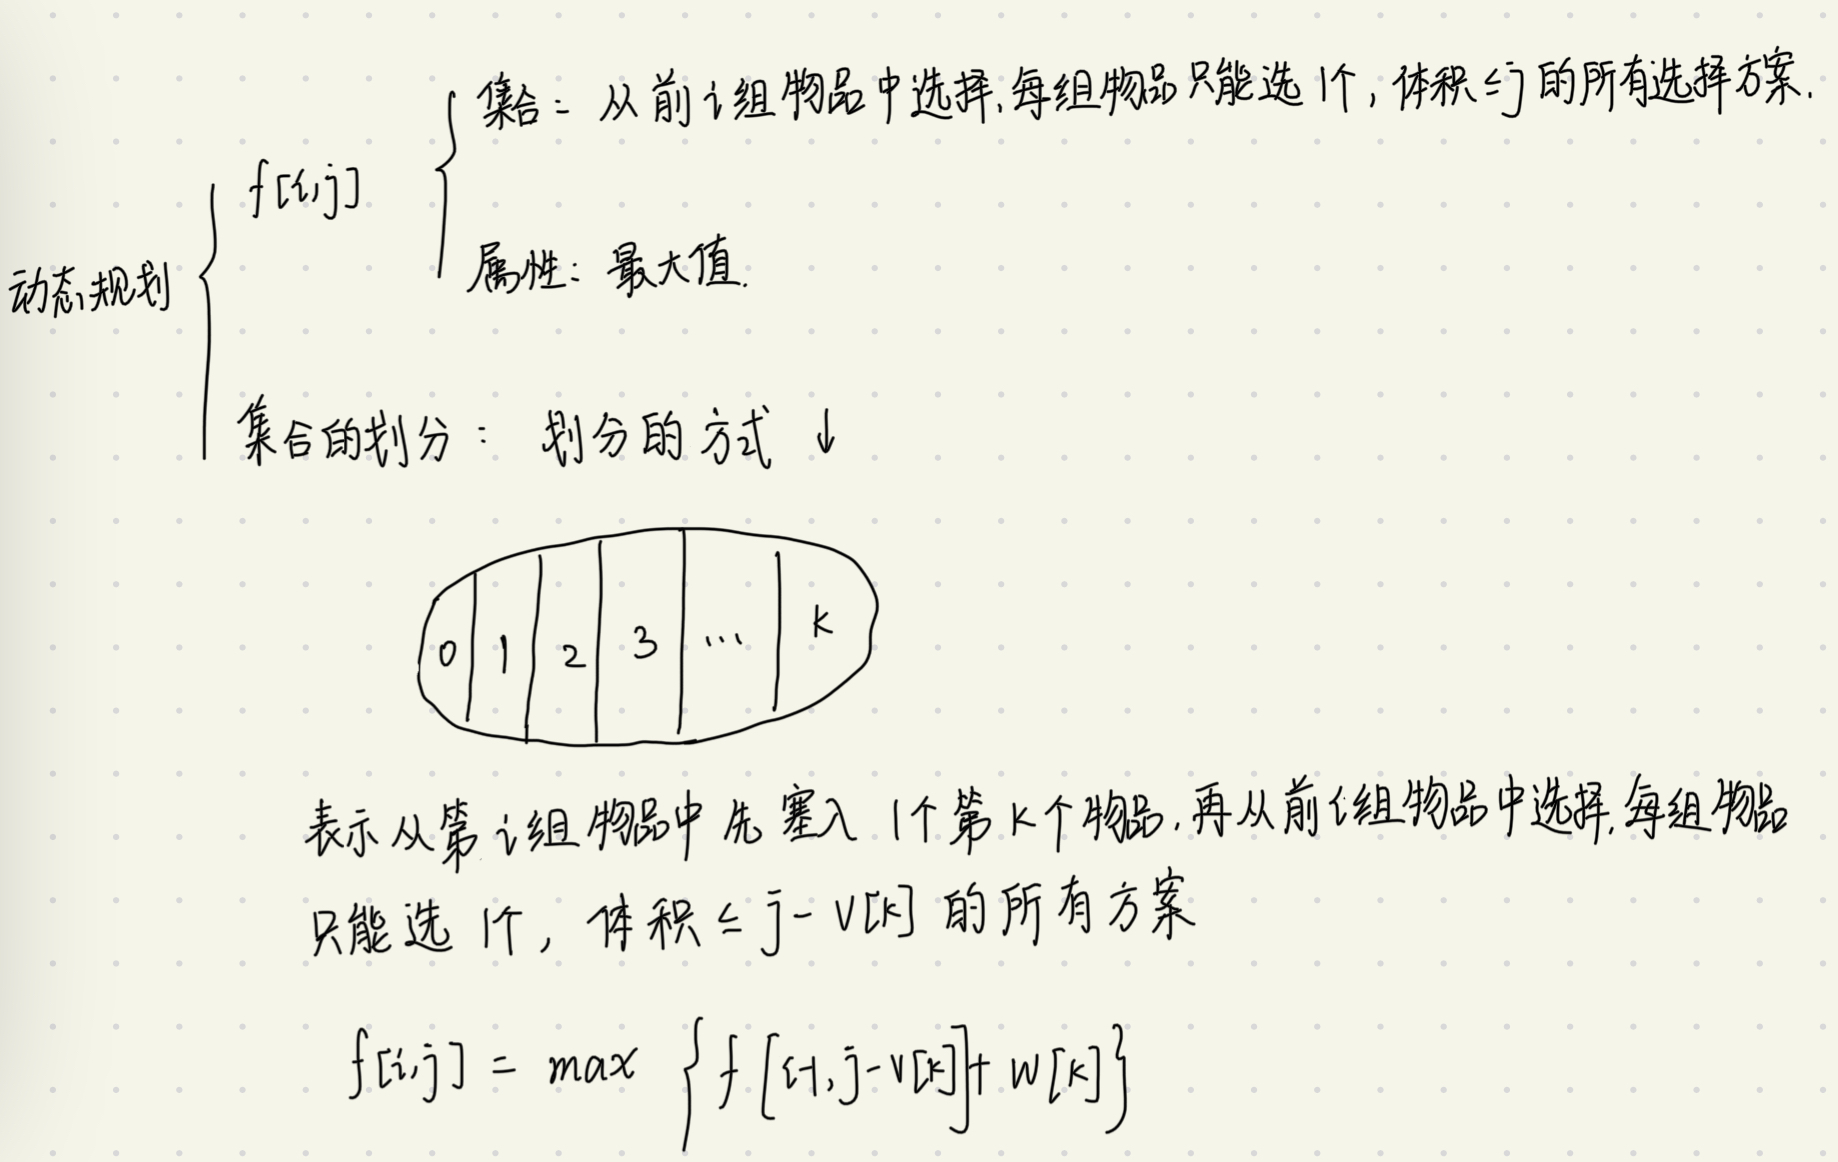 集合: 从前i组物品中选择,每组物品只能选1个,体积≤j的所有选择方案.
f[i,j]
属性: 最大值.
动态规划
集合的划分: 划分的方式 ↓
0 1 2 3 ... k
表示从第i组物品中先塞入1个第k个物品,再从前i组物品中选择,每组物品
只能选1个,体积≤j-v[k]的所有方案
f[i,j] = max {f[i-1,j-v[k]]+w[k]}